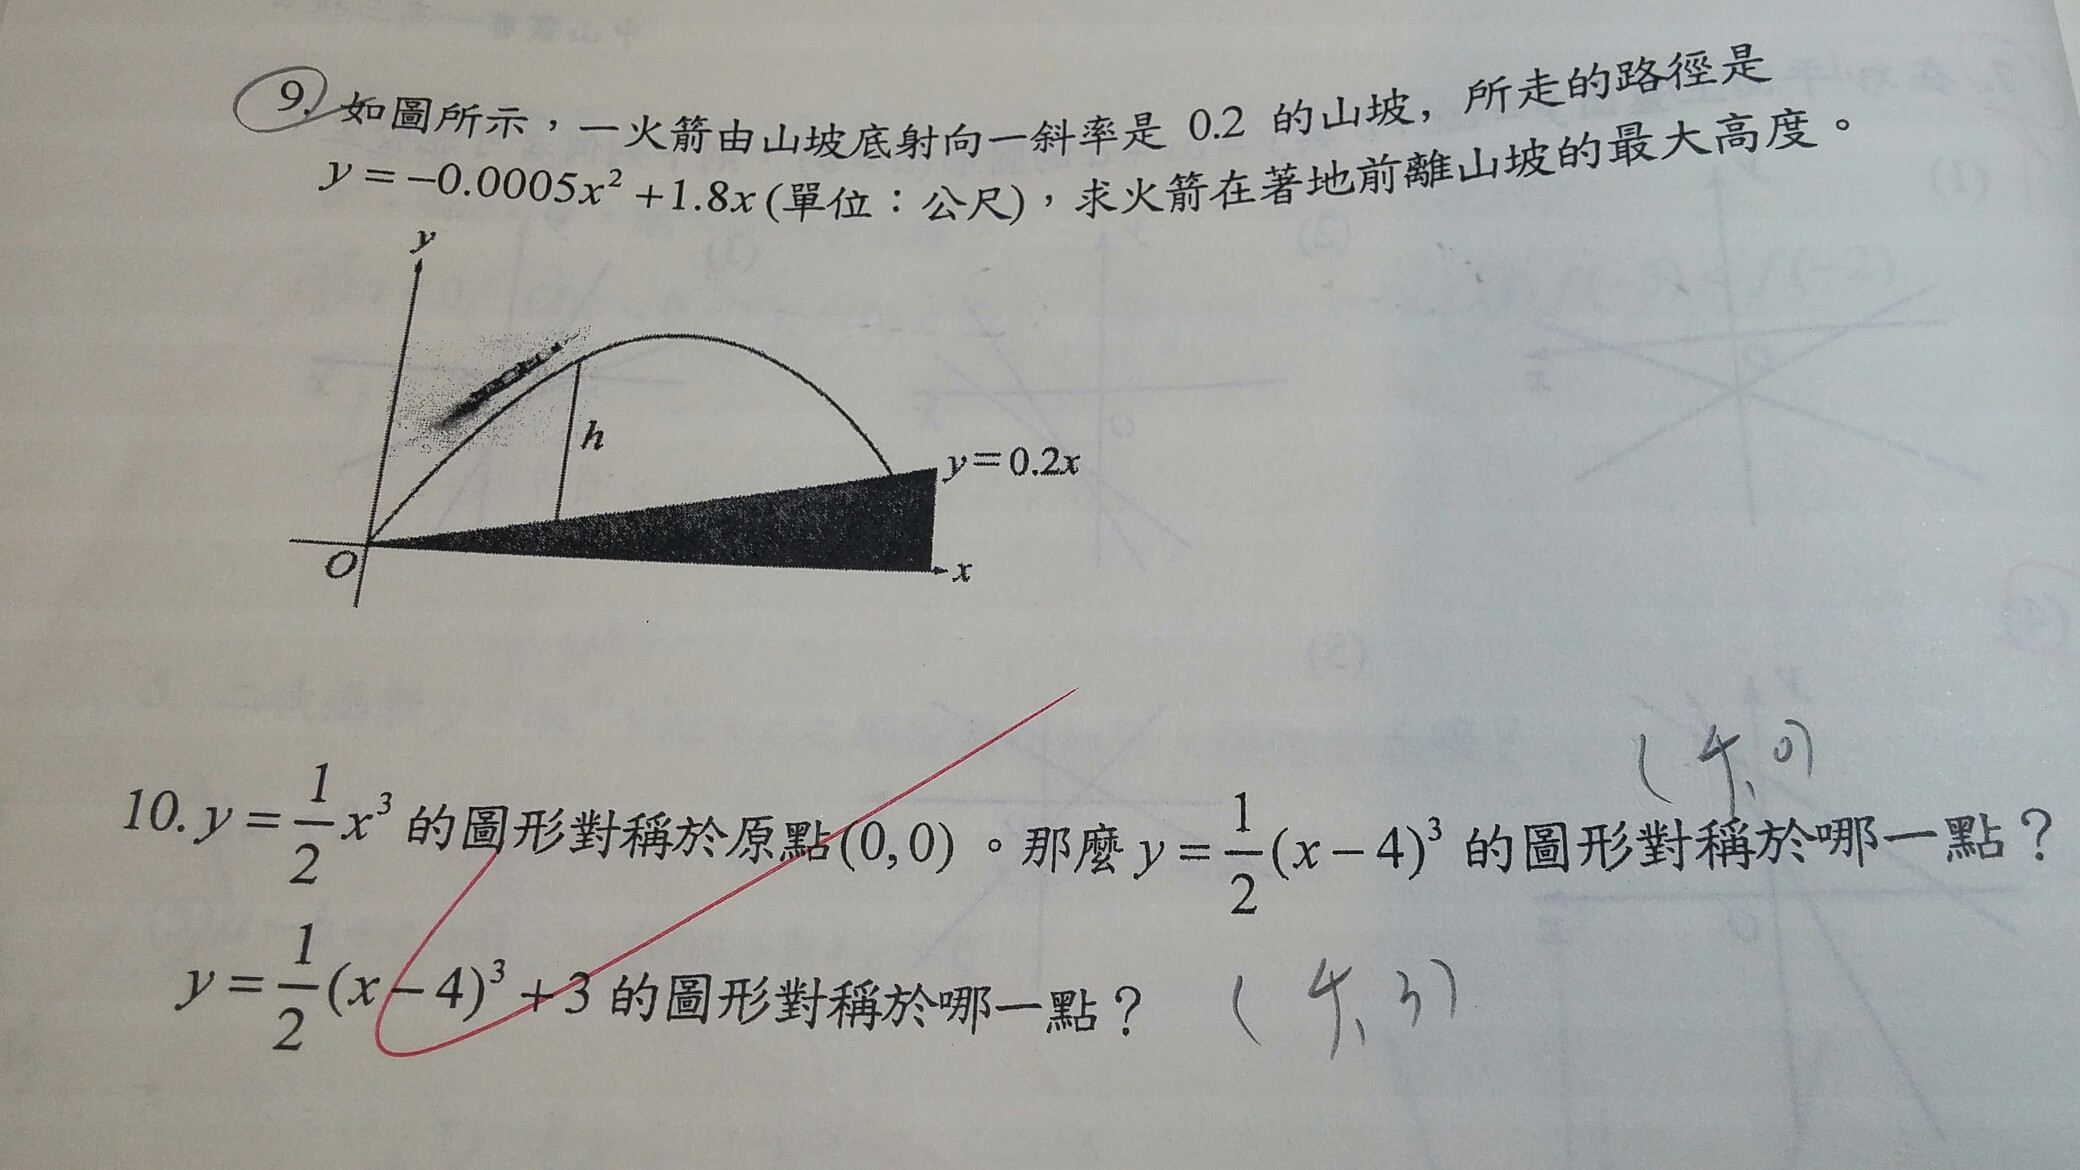 9. 如圖所示，一火箭由山坡底射向一斜率是 0.2 的山坡，所走的路徑是
y = −0.0005x² + 1.8x (單位：公尺)，求火箭在著地前離山坡的最大高度。
y
h
y = 0.2x
O
x
(4, 0)
10. y = 1/2 x³ 的圖形對稱於原點(0, 0)。那麼 y = 1/2 (x − 4)³ 的圖形對稱於哪一點？
y = 1/2 (x − 4)³ + 3 的圖形對稱於哪一點？ (4, 3)